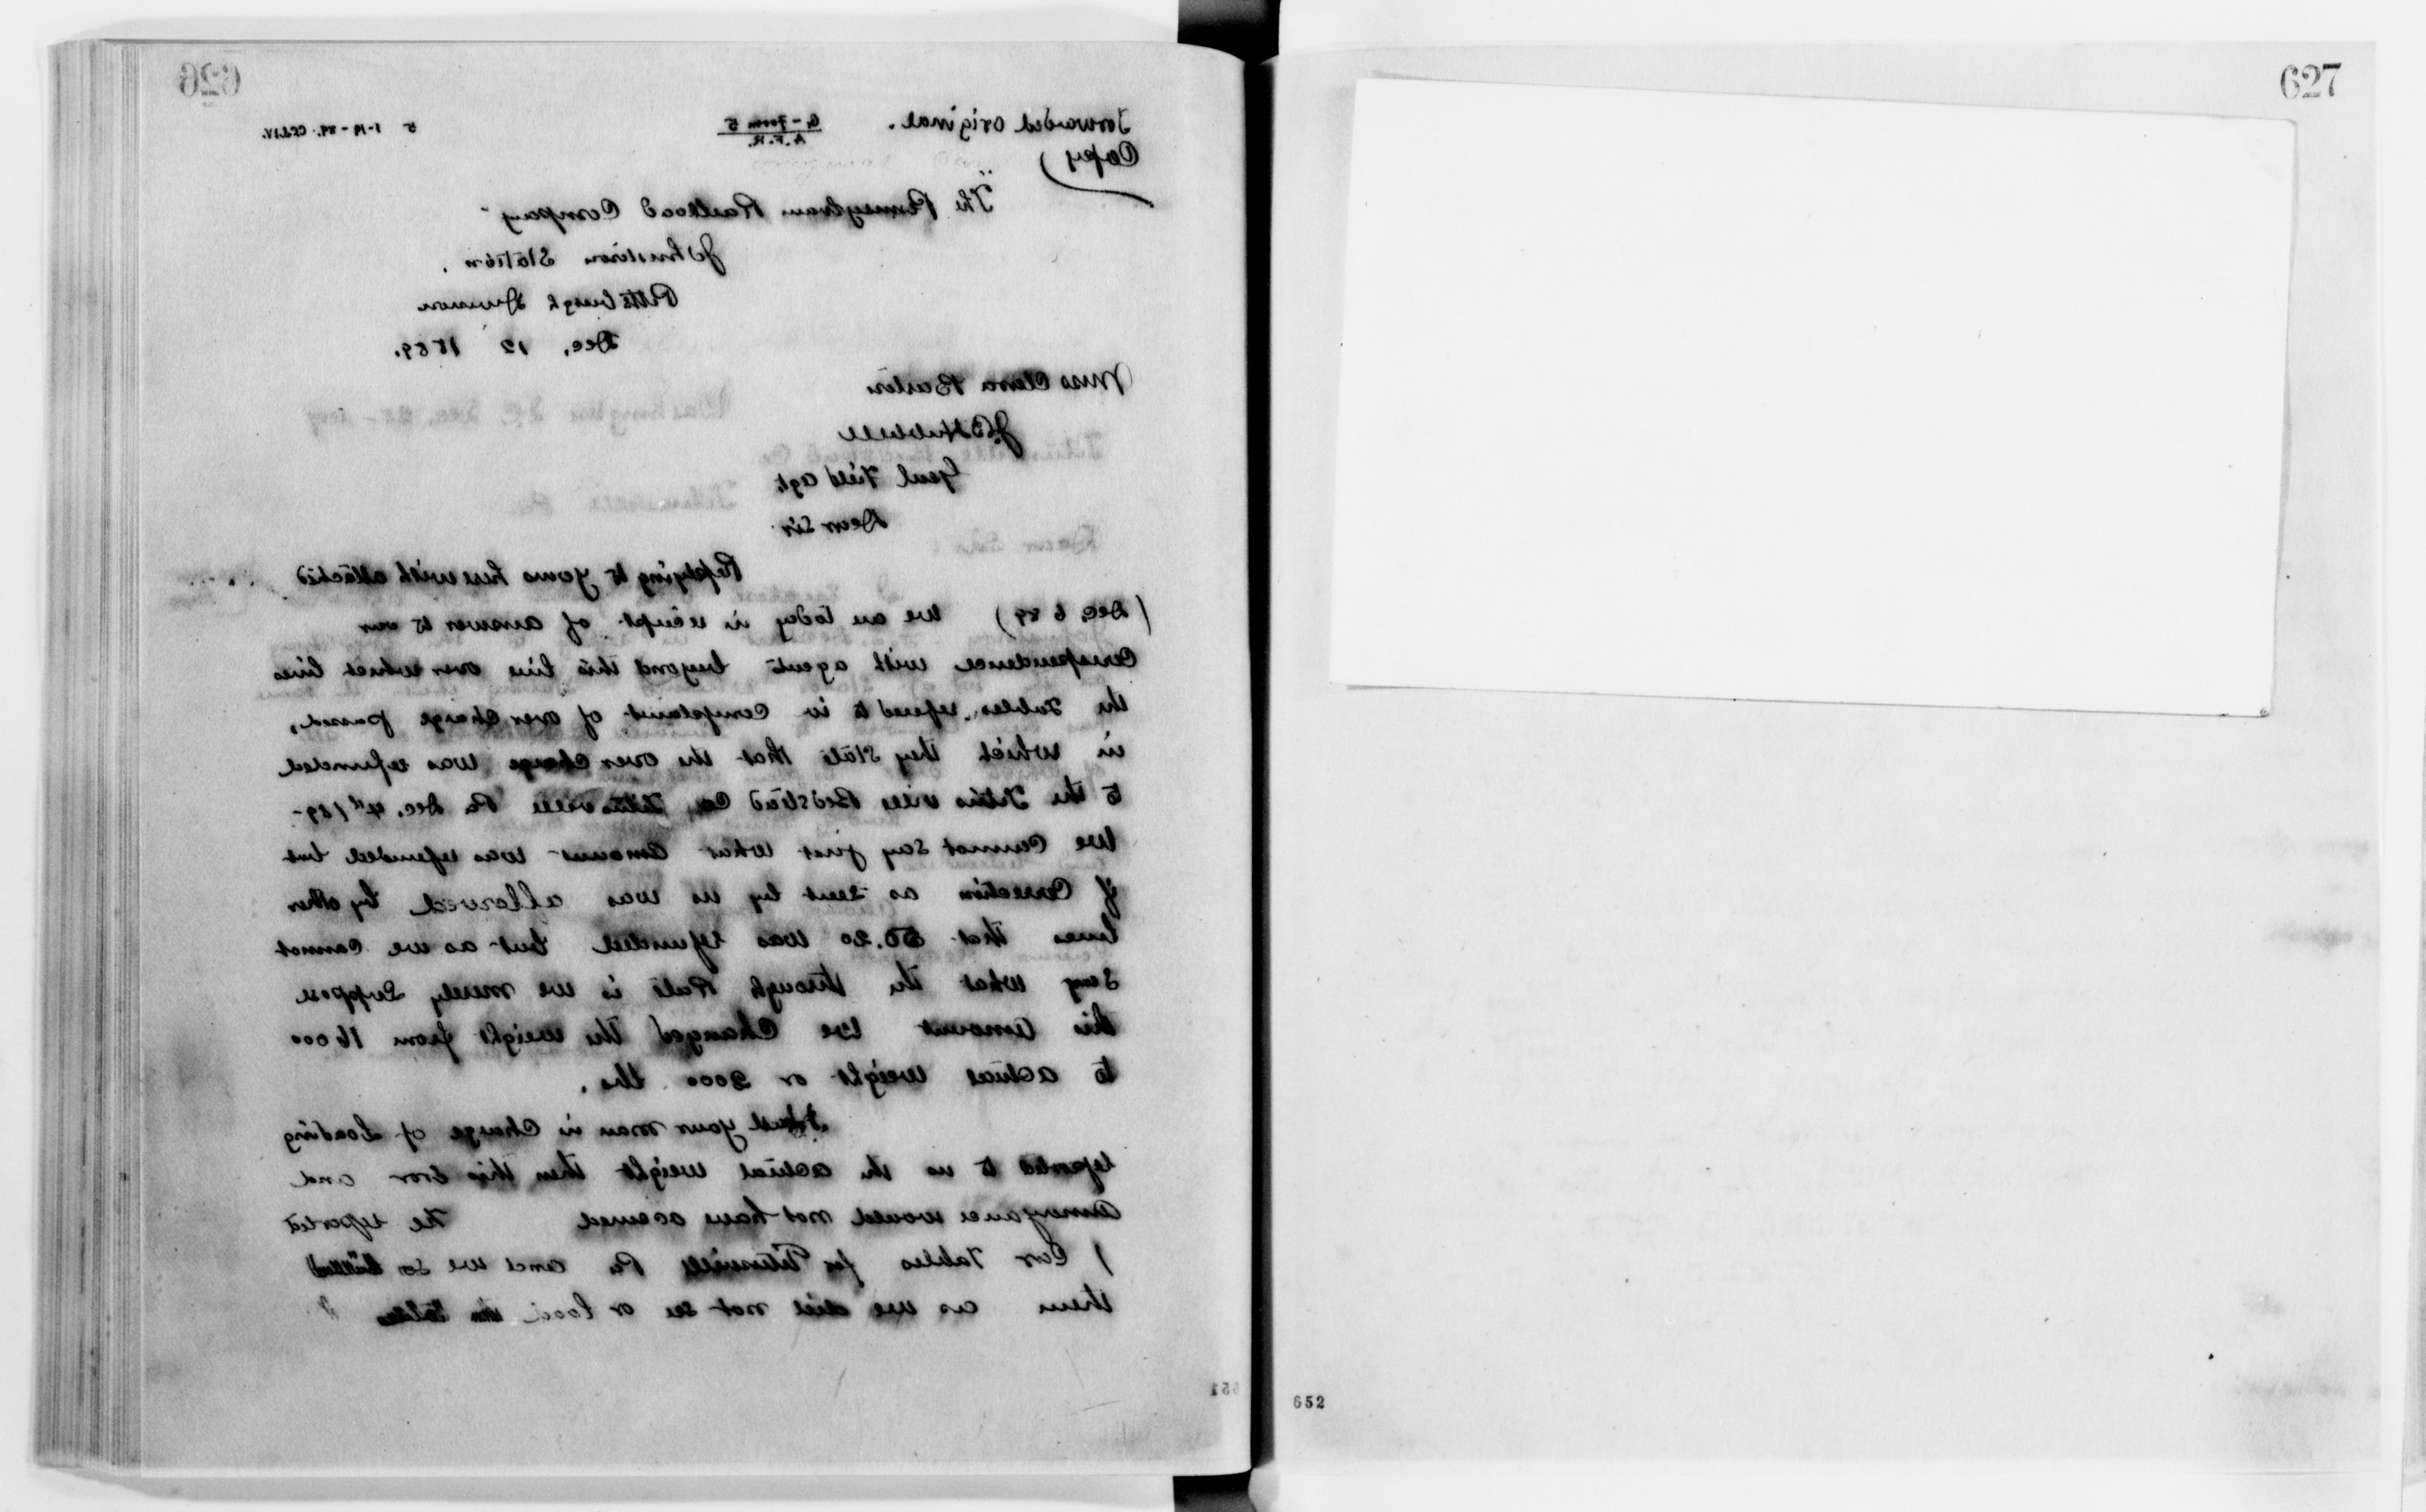 626
Forwarded original.
G-Form 5
A. F. R.
5 1-19-89.
Copy
"The Pennsylvania Railroad Company"
Johnstown Station.
Pittsburgh Division
Dec, 12 1889.
Miss Clara Barton
Hubbell
Genl Field Agt
Dear Sir
Replying to yours herewith attached
(Dec, 6 89) We are today in receipt of answer to our
Correspondence with agents beyond this line over which lines
the Tables refered to in Complaint of over Charge passed,
in which they state that the over charge was refunded
to the Titusville Bedstead Co, Titusville Pa Dec. 4"/89-
We Cannot say just what amount was refunded but
if Correction as sent by us was allowed by other
lines that 50.20 was refunded but as we cannot
Say what the through Rate is we merely Suppose
this amount We Changed the weight from 16000
to actual weight or 9000 lbs.
Had your man in Charge of Loading
reported to us the actual weight then this Eror and
annoyance would not have occured He reported
1 Car Tables for Titusville Pa and we so billed
them as we did not see or load the tables "
651
627
652